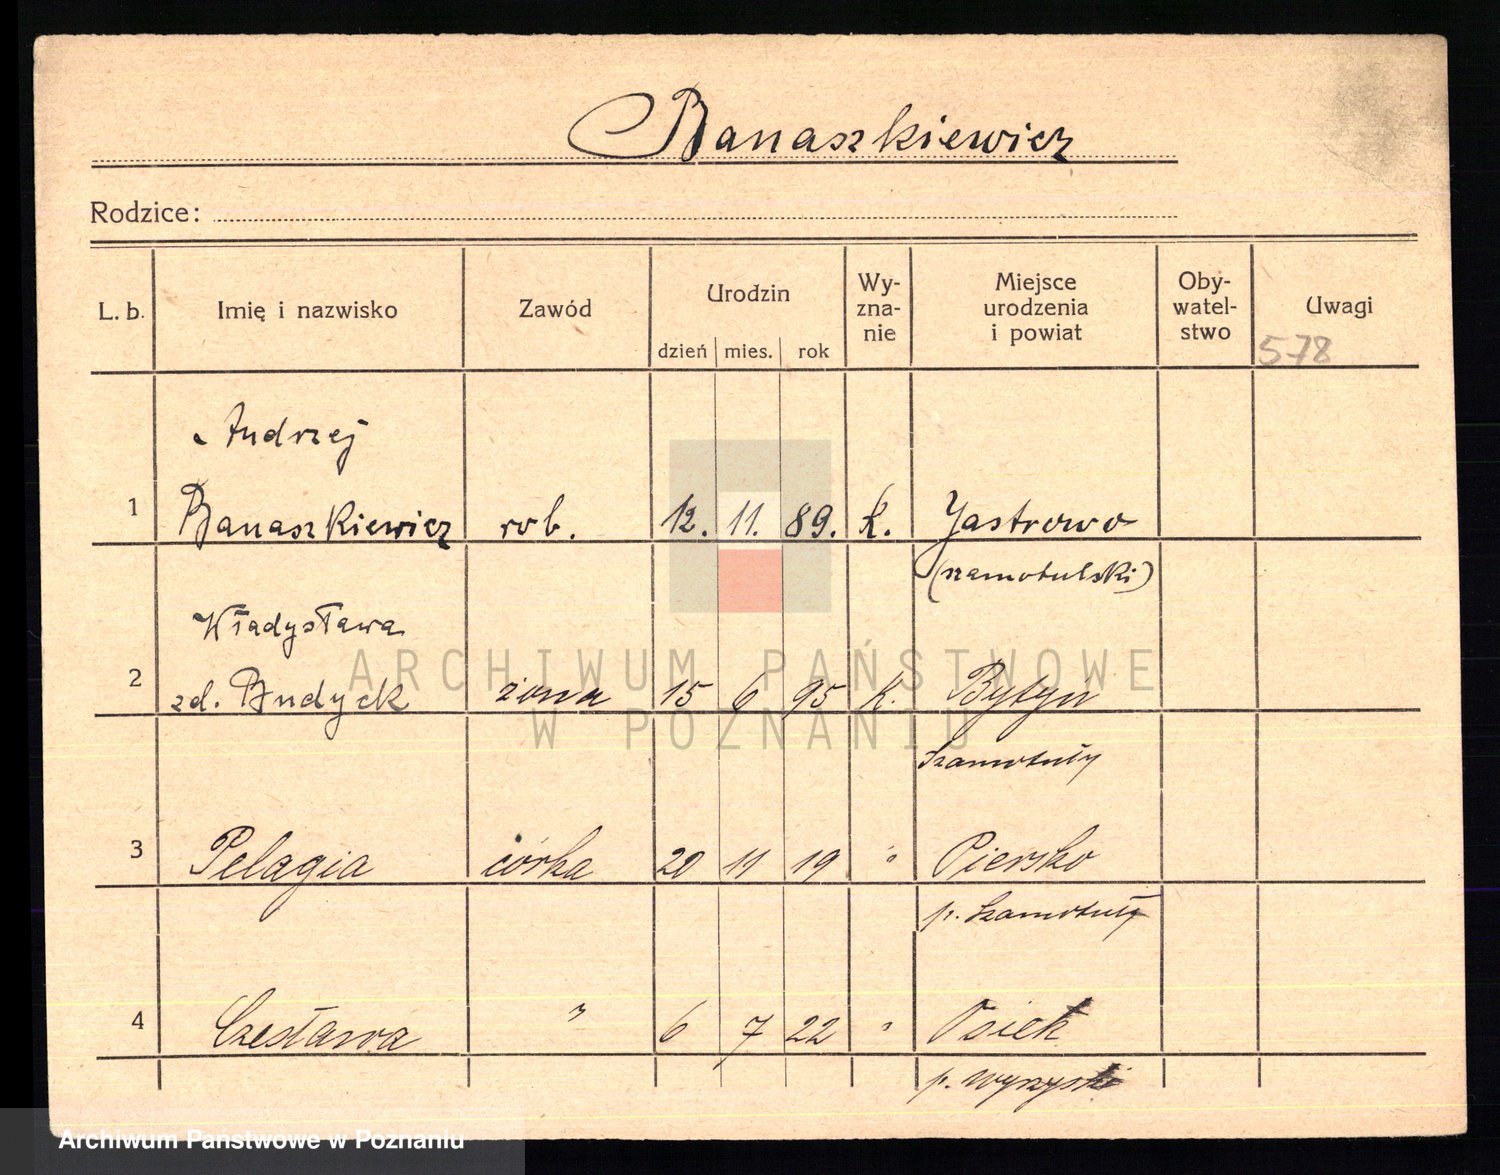 Banaszkiewicz
Rodzice:
L. b. Imię i nazwisko Zawód Urodzin Wy-zna-nie Miejsce urodzenia i powiat Oby-watel-stwo Uwagi
dzień mies. rok 578
Andrzej
1 Banaszkiewicz rob. 12. 11. 89. k. Jastrowo
(szamotulski)
Władysława
2 zd. Budyck żona 15 6 95 k. Bytyń
Szamotuły
3 Pelagia córka 20 11 19 " Piersko
p. Szamotuły
4 Czesława " 6 7 22 " Osiek
p. Wyrzyski
ARCHIWUM PAŃSTWOWE
W POZNANIU
Archiwum Państwowe w Poznaniu